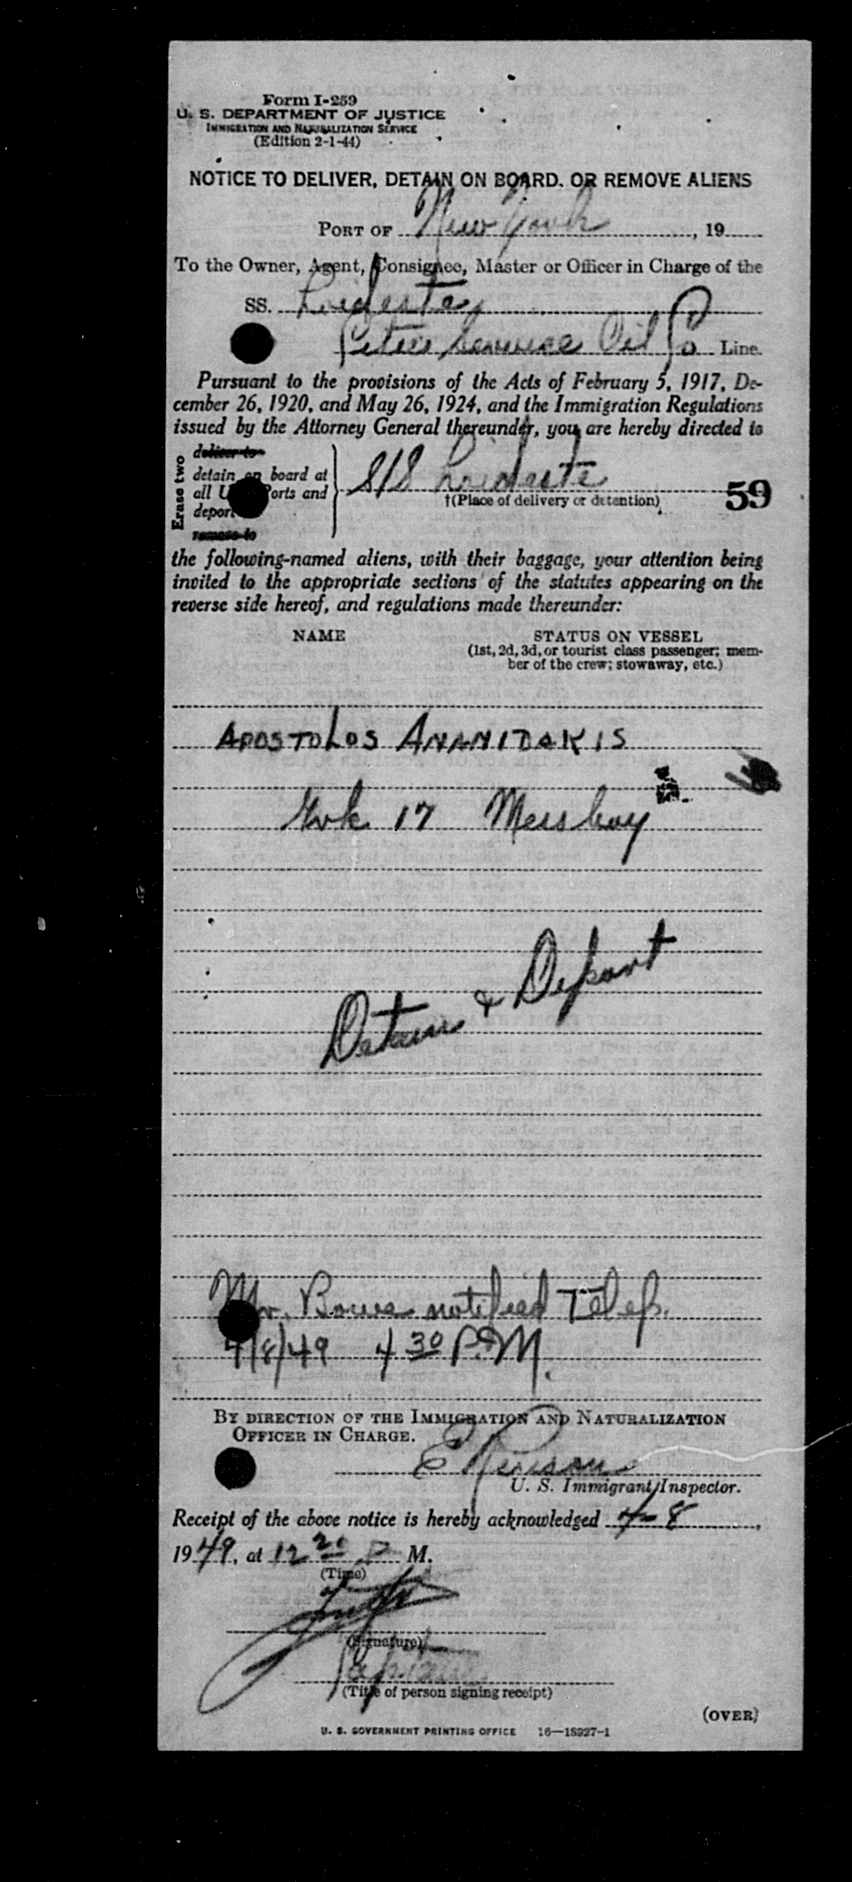 Form I-259
U. S. DEPARTMENT OF JUSTICE
IMMIGRATION AND NATURALIZATION SERVICE
(Edition 2-1-44)
NOTICE TO DELIVER, DETAIN ON BOARD, OR REMOVE ALIENS
PORT OF New York, 19
To the Owner, Agent, Consignee, Master or Officer in Charge of the
SS.
Service Oil Co Line.
Pursuant to the provisions of the Acts of February 5, 1917, De-
cember 26, 1920, and May 26, 1924, and the Immigration Regulations
issued by the Attorney General thereunder, you are hereby directed to
Erase two
deliver to
detain on board at
all U. Ports and
deport
remove to
S/S
†(Place of delivery or detention)
59
the following-named aliens, with their baggage, your attention being
invited to the appropriate sections of the statutes appearing on the
reverse side hereof, and regulations made thereunder:
NAME
STATUS ON VESSEL
(1st, 2d, 3d, or tourist class passenger; mem-
ber of the crew; stowaway, etc.)
APOSTOLOS ANANIDAKIS
17 Messboy
Detain & Deport
Mr. notified Teleph.
4/8/49 4 30 P.M.
BY DIRECTION OF THE IMMIGRATION AND NATURALIZATION
OFFICER IN CHARGE.
U. S. Immigrant Inspector.
Receipt of the above notice is hereby acknowledged 4-8,
1949, at 12 20 P M.
(Time)
(Signature)
Captain
(Title of person signing receipt)
(OVER)
U. S. GOVERNMENT PRINTING OFFICE 16—18927-1